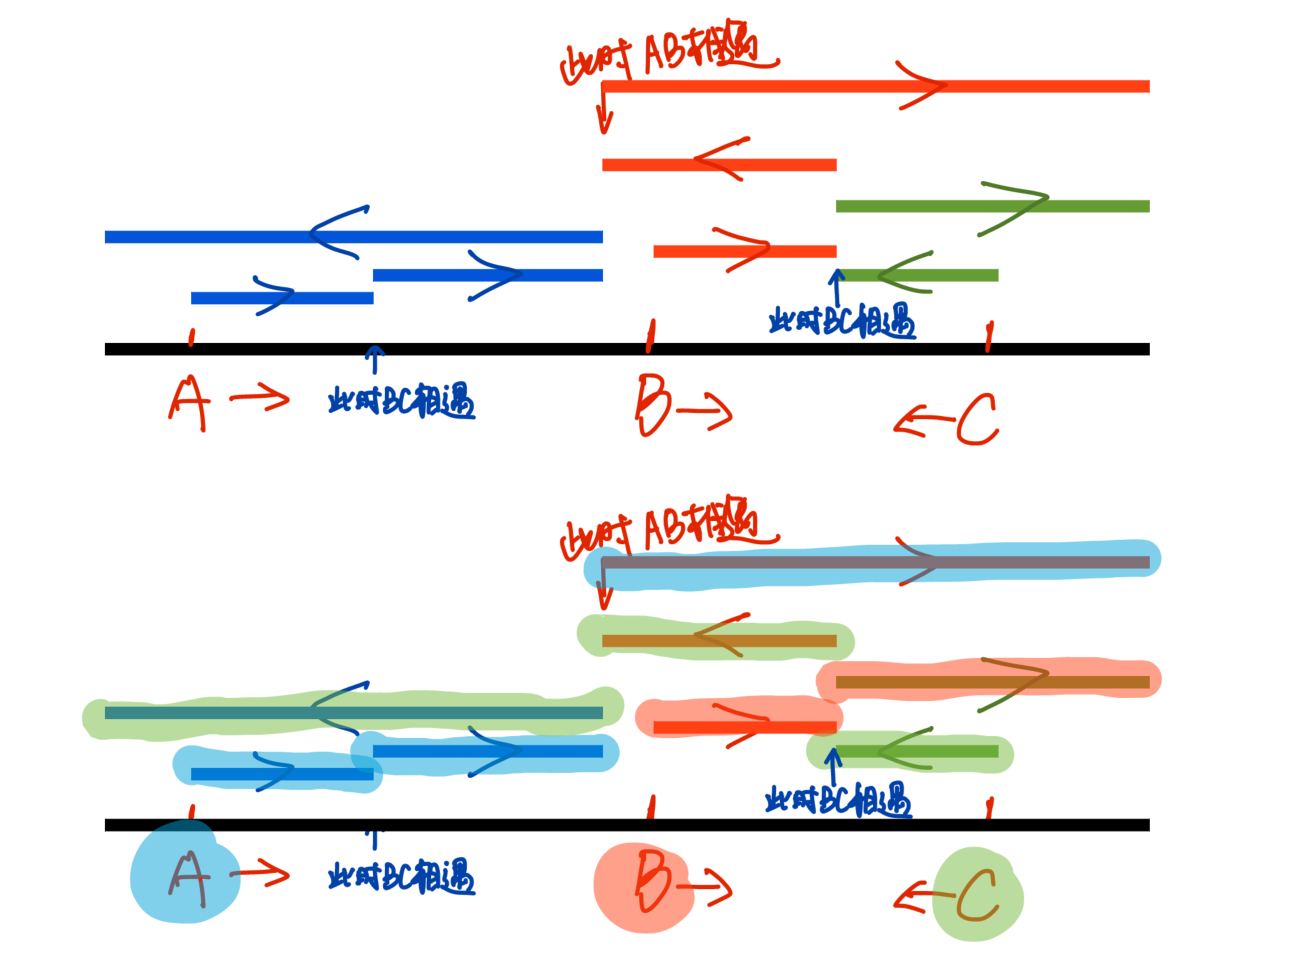 此时 AB相遇
此时BC相遇
A
此时BC相遇
B
C
此时 AB相遇
此时BC相遇
A
此时BC相遇
B
C